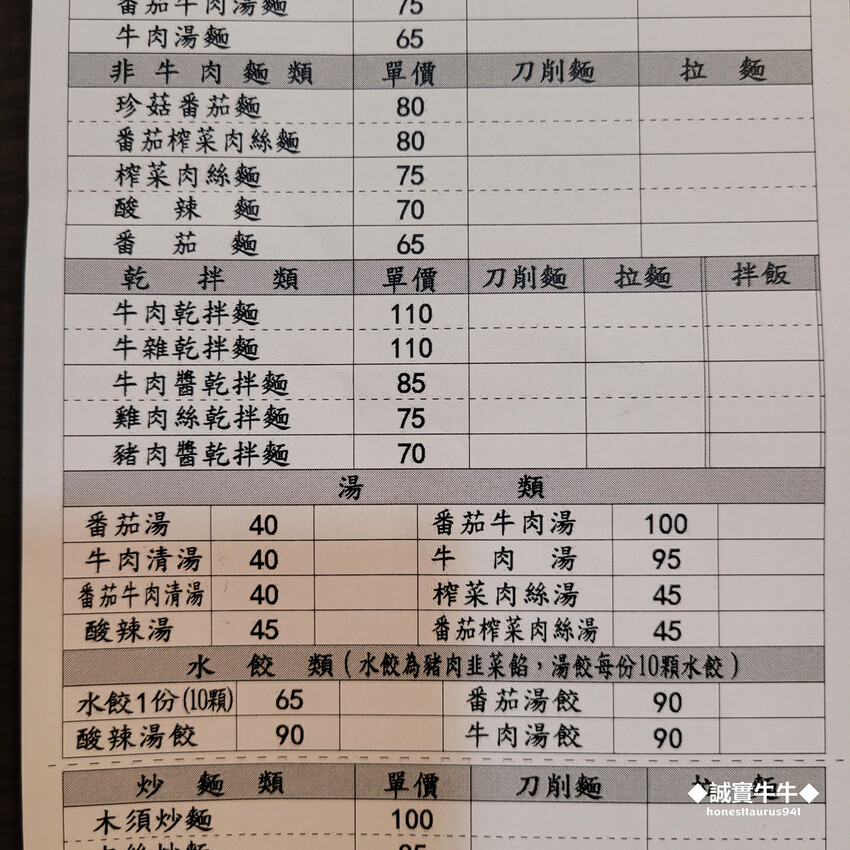 番茄牛肉湯麵 75
牛肉湯麵 65
非牛肉麵類 單價 刀削麵 拉麵
珍菇番茄麵 80
番茄榨菜肉絲麵 80
榨菜肉絲麵 75
酸辣麵 70
番茄麵 65
乾拌類 單價 刀削麵 拉麵 拌飯
牛肉乾拌麵 110
牛雜乾拌麵 110
牛肉醬乾拌麵 85
雞肉絲乾拌麵 75
豬肉醬乾拌麵 70
湯類
番茄湯 40 番茄牛肉湯 100
牛肉清湯 40 牛肉湯 95
番茄牛肉清湯 40 榨菜肉絲湯 45
酸辣湯 45 番茄榨菜肉絲湯 45
水餃類(水餃為豬肉韭菜餡，湯餃每份10顆水餃)
水餃1份(10顆) 65 番茄湯餃 90
酸辣湯餃 90 牛肉湯餃 90
炒麵類 單價 刀削麵 拉麵
木須炒麵 100
◆誠實牛牛◆
honesttaurus941